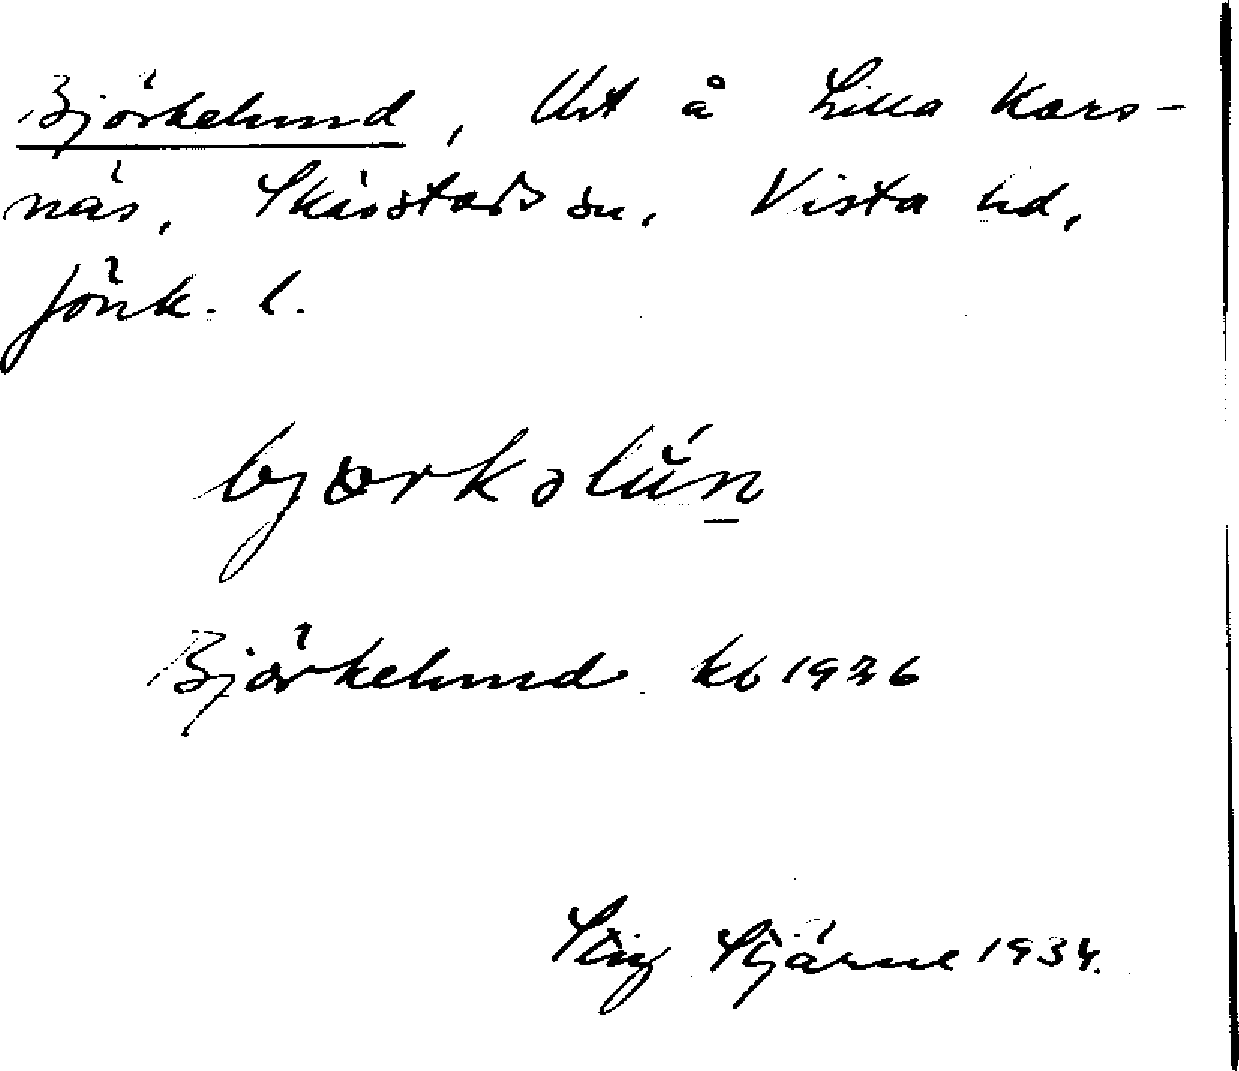 Björkelund, Utt å Lilla Kars-
näs, Skärstads sn. Vista hd,
Jönk. l.
bjørkəlún
Björkelund kb 1926
Stig Stjärne 1934.